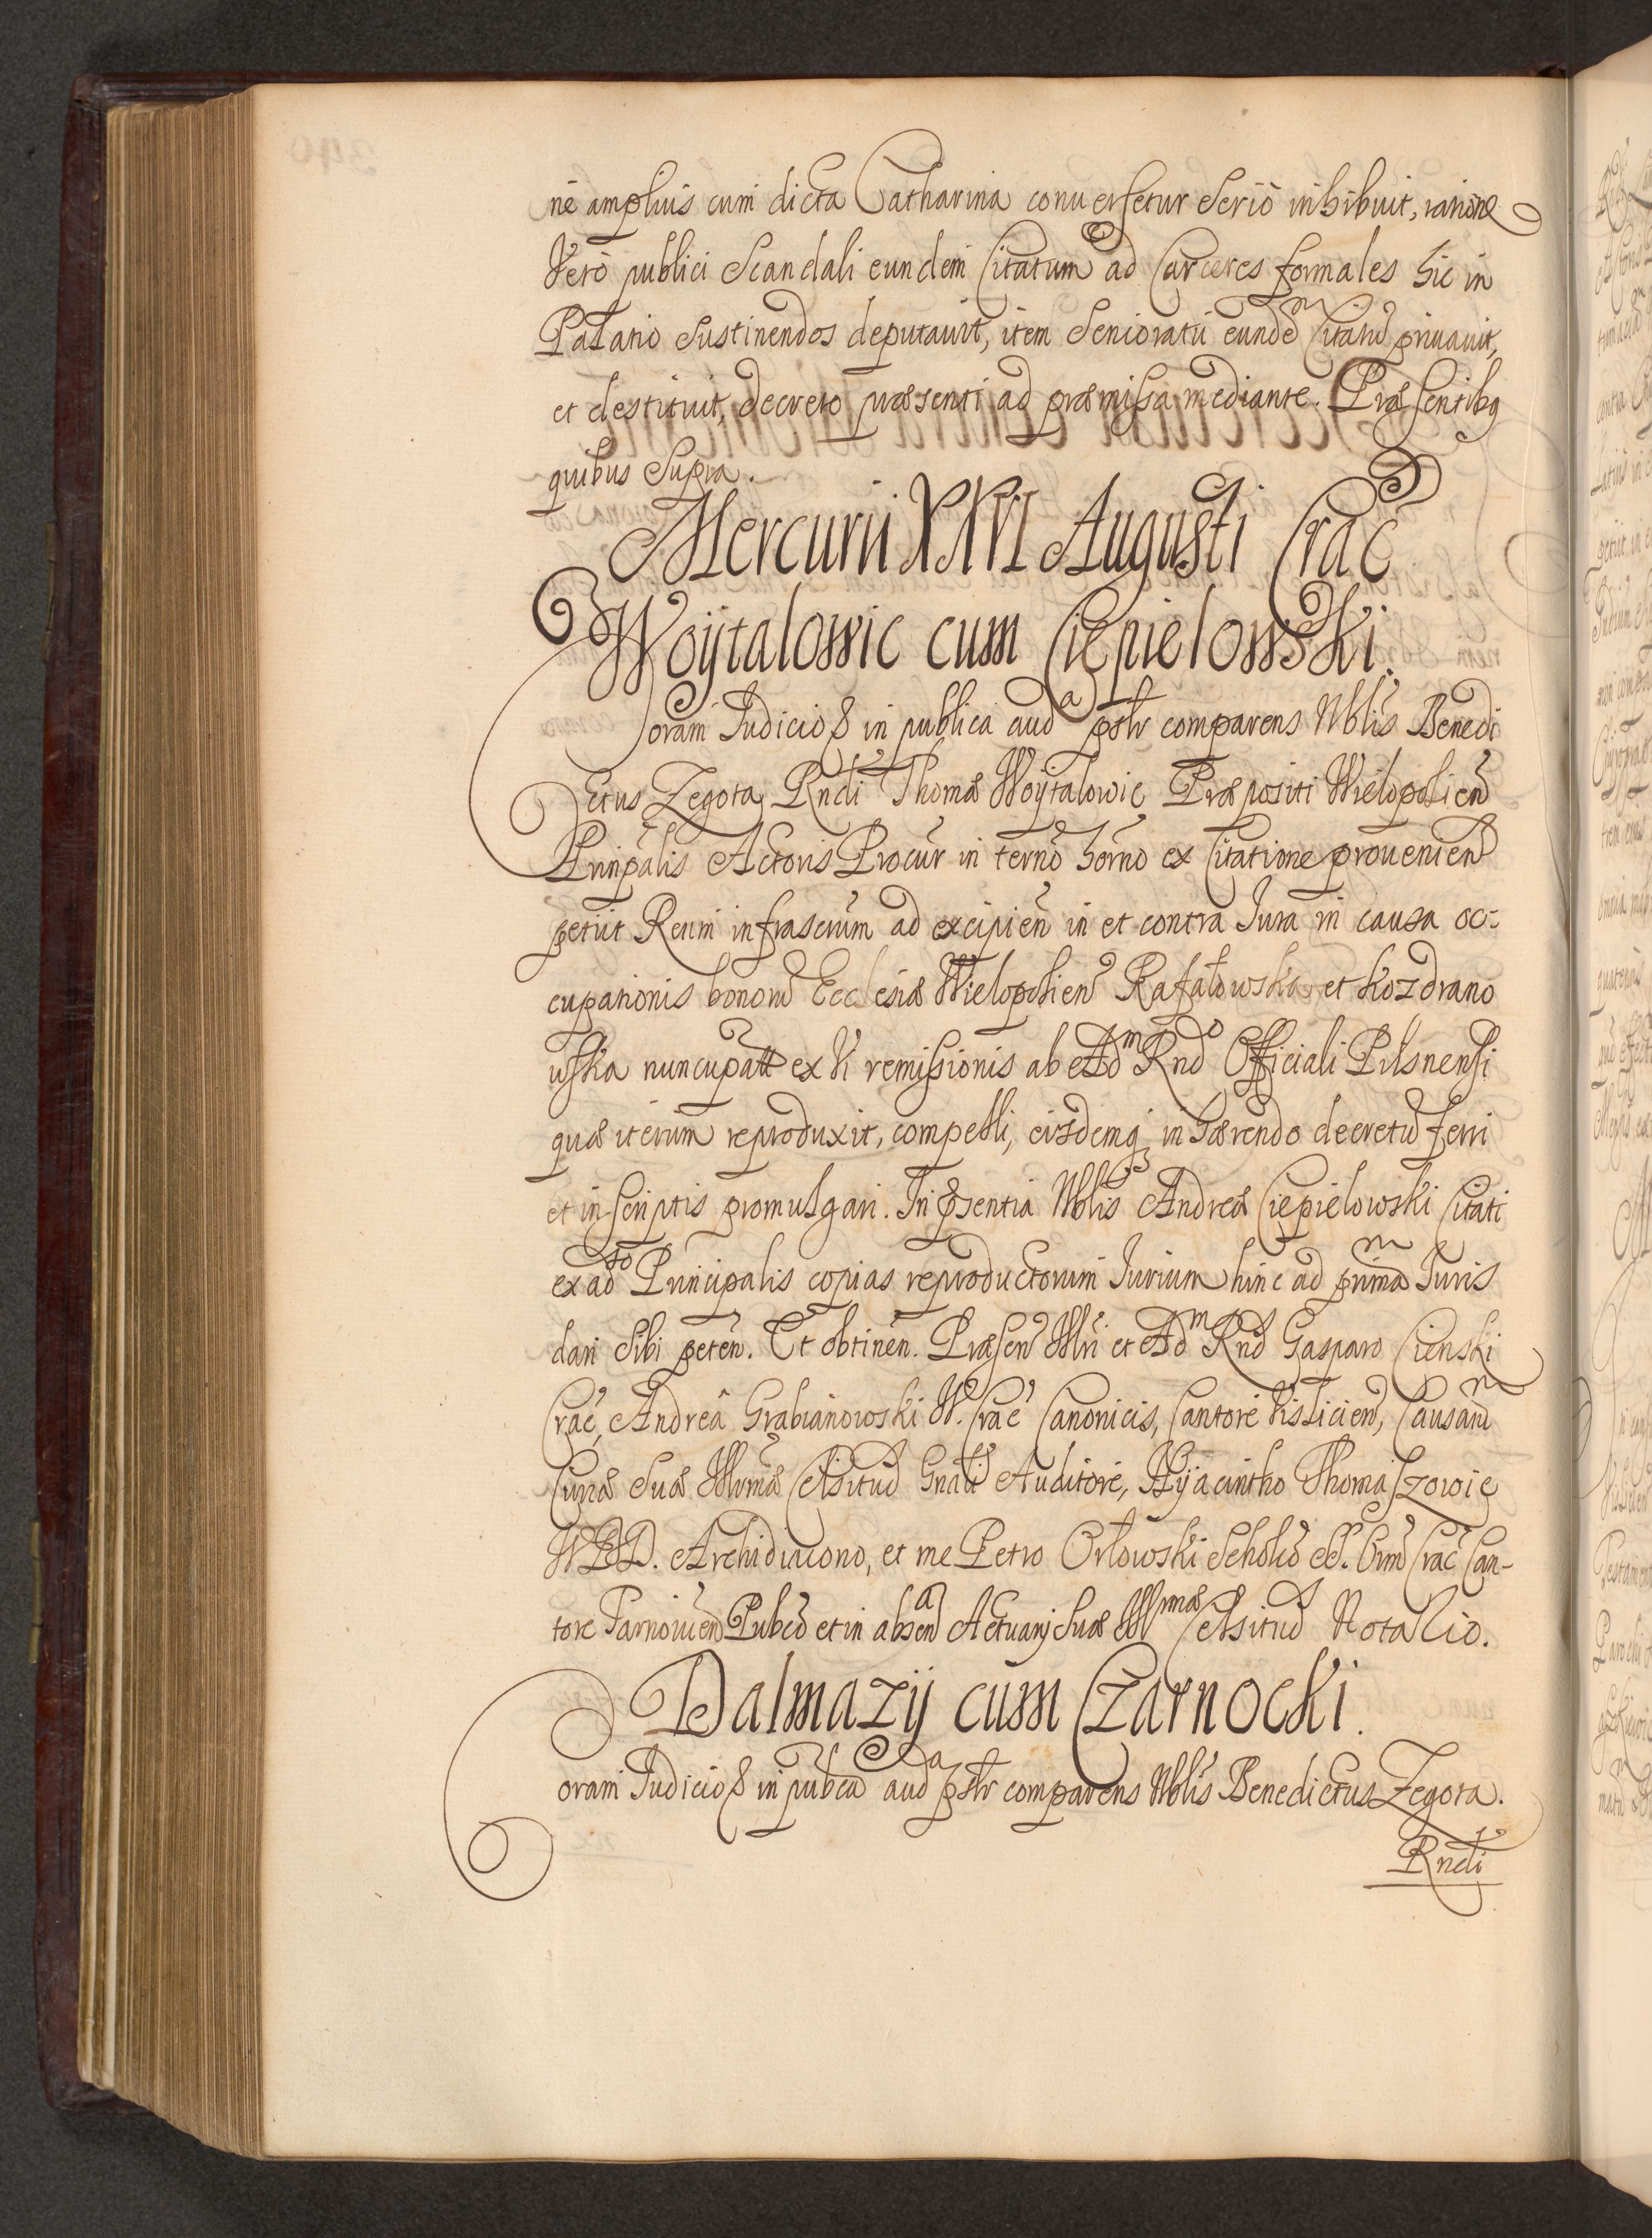 ne amplius cum dicta Catharina conuersetur Serio inhibuit, ratione
Vero publici Scandali eundem Citatum ad Carceres formales hic in
Palatio Sustinendos deputauit, item Senioratu eundem Citatum priuauit,
et destituit, decreto præsenti ad præmissa mediante. Præsentibq
quibus Supra.
Mercurii XXVI Augusti Crac
Woÿtalowic cum Ciepielowski.
Coram Judicio in publica auda pstr comparens Nblis Benedi
ctus Zegota Rndi Thomæ Woÿtalowic Præpositi Wielopolien
Prinpalis Actoris Procur in terno horno ex Citatione prouenien
petiit Reum infrascrum ad excipien in et contra Jura in causa oc-
cupationis bonorum Ecclesiæ Wielopolien Rafałowska et Kozdrano
wska nuncupatt ex Vi remissionis ab Adm Rndo Officiali Pilsnensi
quæ iterum reproduxit, compelli, eisdemq inhærendo decretum ferri
et in scriptis promulgari. In psentia Nblis Andreæ Ciepielowski Citati
ex adso Principalis copias reproductorum Jurium hinc ad primam Juris
dari Sibi peten. Et obtinen. Præsen Illri et Adm Rnd Gasparo Cienski
Crac, Andrea Grabianowski W. Crac Canonicis, Cantore Vislicien, Causarum
Curiæ Suæ Illrmæ Celsitud Gnali Auditore, Hÿacintho Thomaszowic
Archidiacono, et me Petro Orłowski Scholo SS. Omn Crac Can-
tore Tarnouien Pubco et in absen Actuarij Suæ Illrmæ Celsitud Notario.
Dalmazij cum Czarnocki.
oram Judicio in pubca auda pstr comparens Nblis Benedictus Zegota.
Rndi